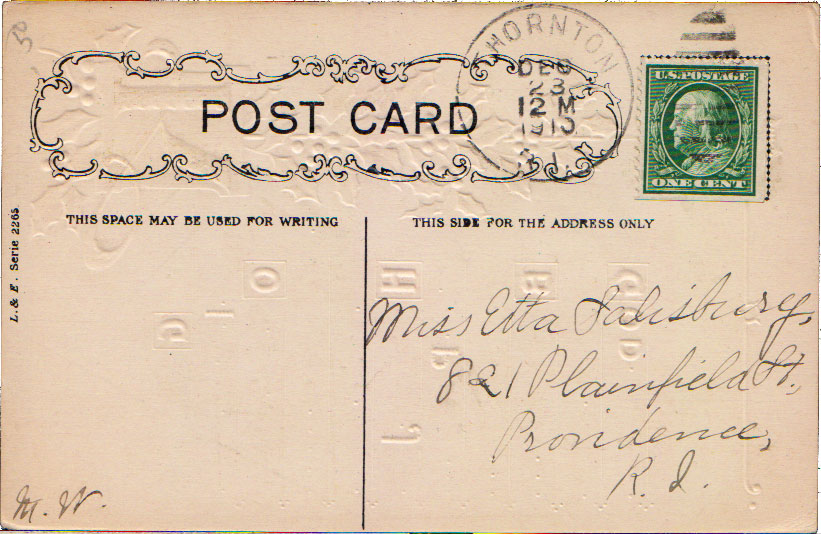 50
THORNTON
DEC
23
12 M
1910
R.I.
U.S. POSTAGE
ONE CENT
POST CARD
THIS SPACE MAY BE USED FOR WRITING
THIS SIDE FOR THE ADDRESS ONLY
L. & E. Serie 2265
Miss Etta Salisbury,
821 Plainfield St.,
Providence,
R. I.
M. W.